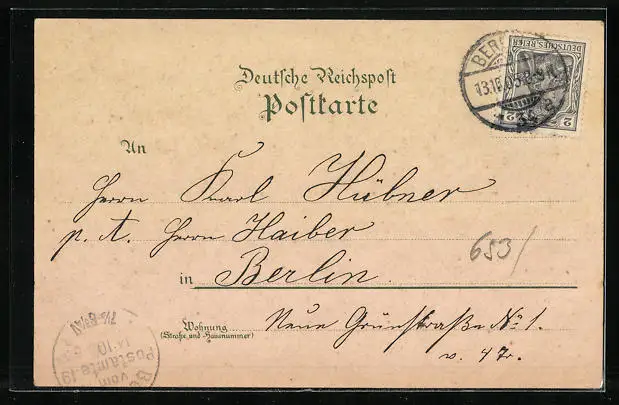 Deutsche Reichspost
Postkarte
An
Herrn Karl Hübner
p. A. Herrn Haiber
in Berlin.
Wohnung
(Straße und Hausnummer)
Neue Grünstraße No 1.
v. 4 Tr.
653/
DEUTSCHES REICH
2 2